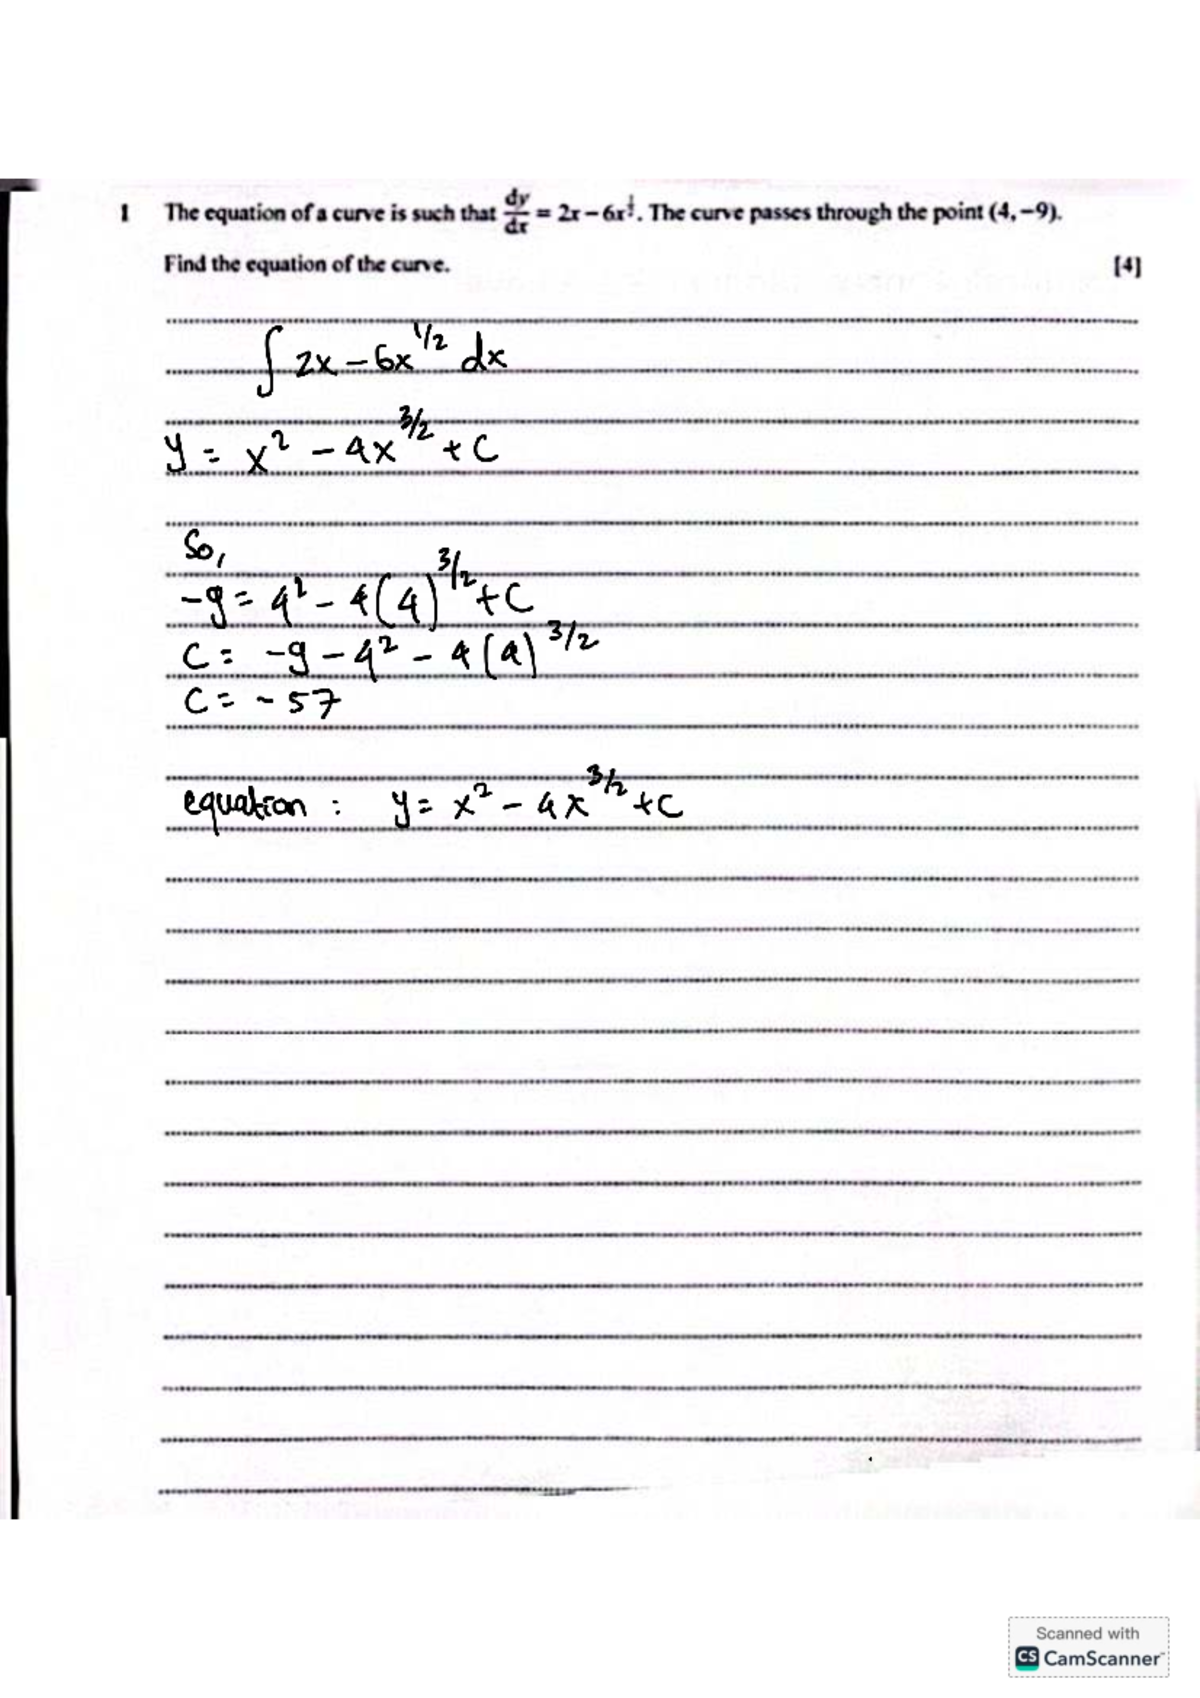 1 The equation of a curve is such that dy/dx = 2x − 6x^½. The curve passes through the point (4, −9).
Find the equation of the curve. [4]
∫ 2x − 6x^1/2 dx
y = x² − 4x^3/2 + C
So,
-9 = 4² − 4(4)^3/2 + C
C = -9 − 4² − 4(4)^3/2
C = - 57
equation : y = x² − 4x^3/2 + C
Scanned with
CS CamScanner™